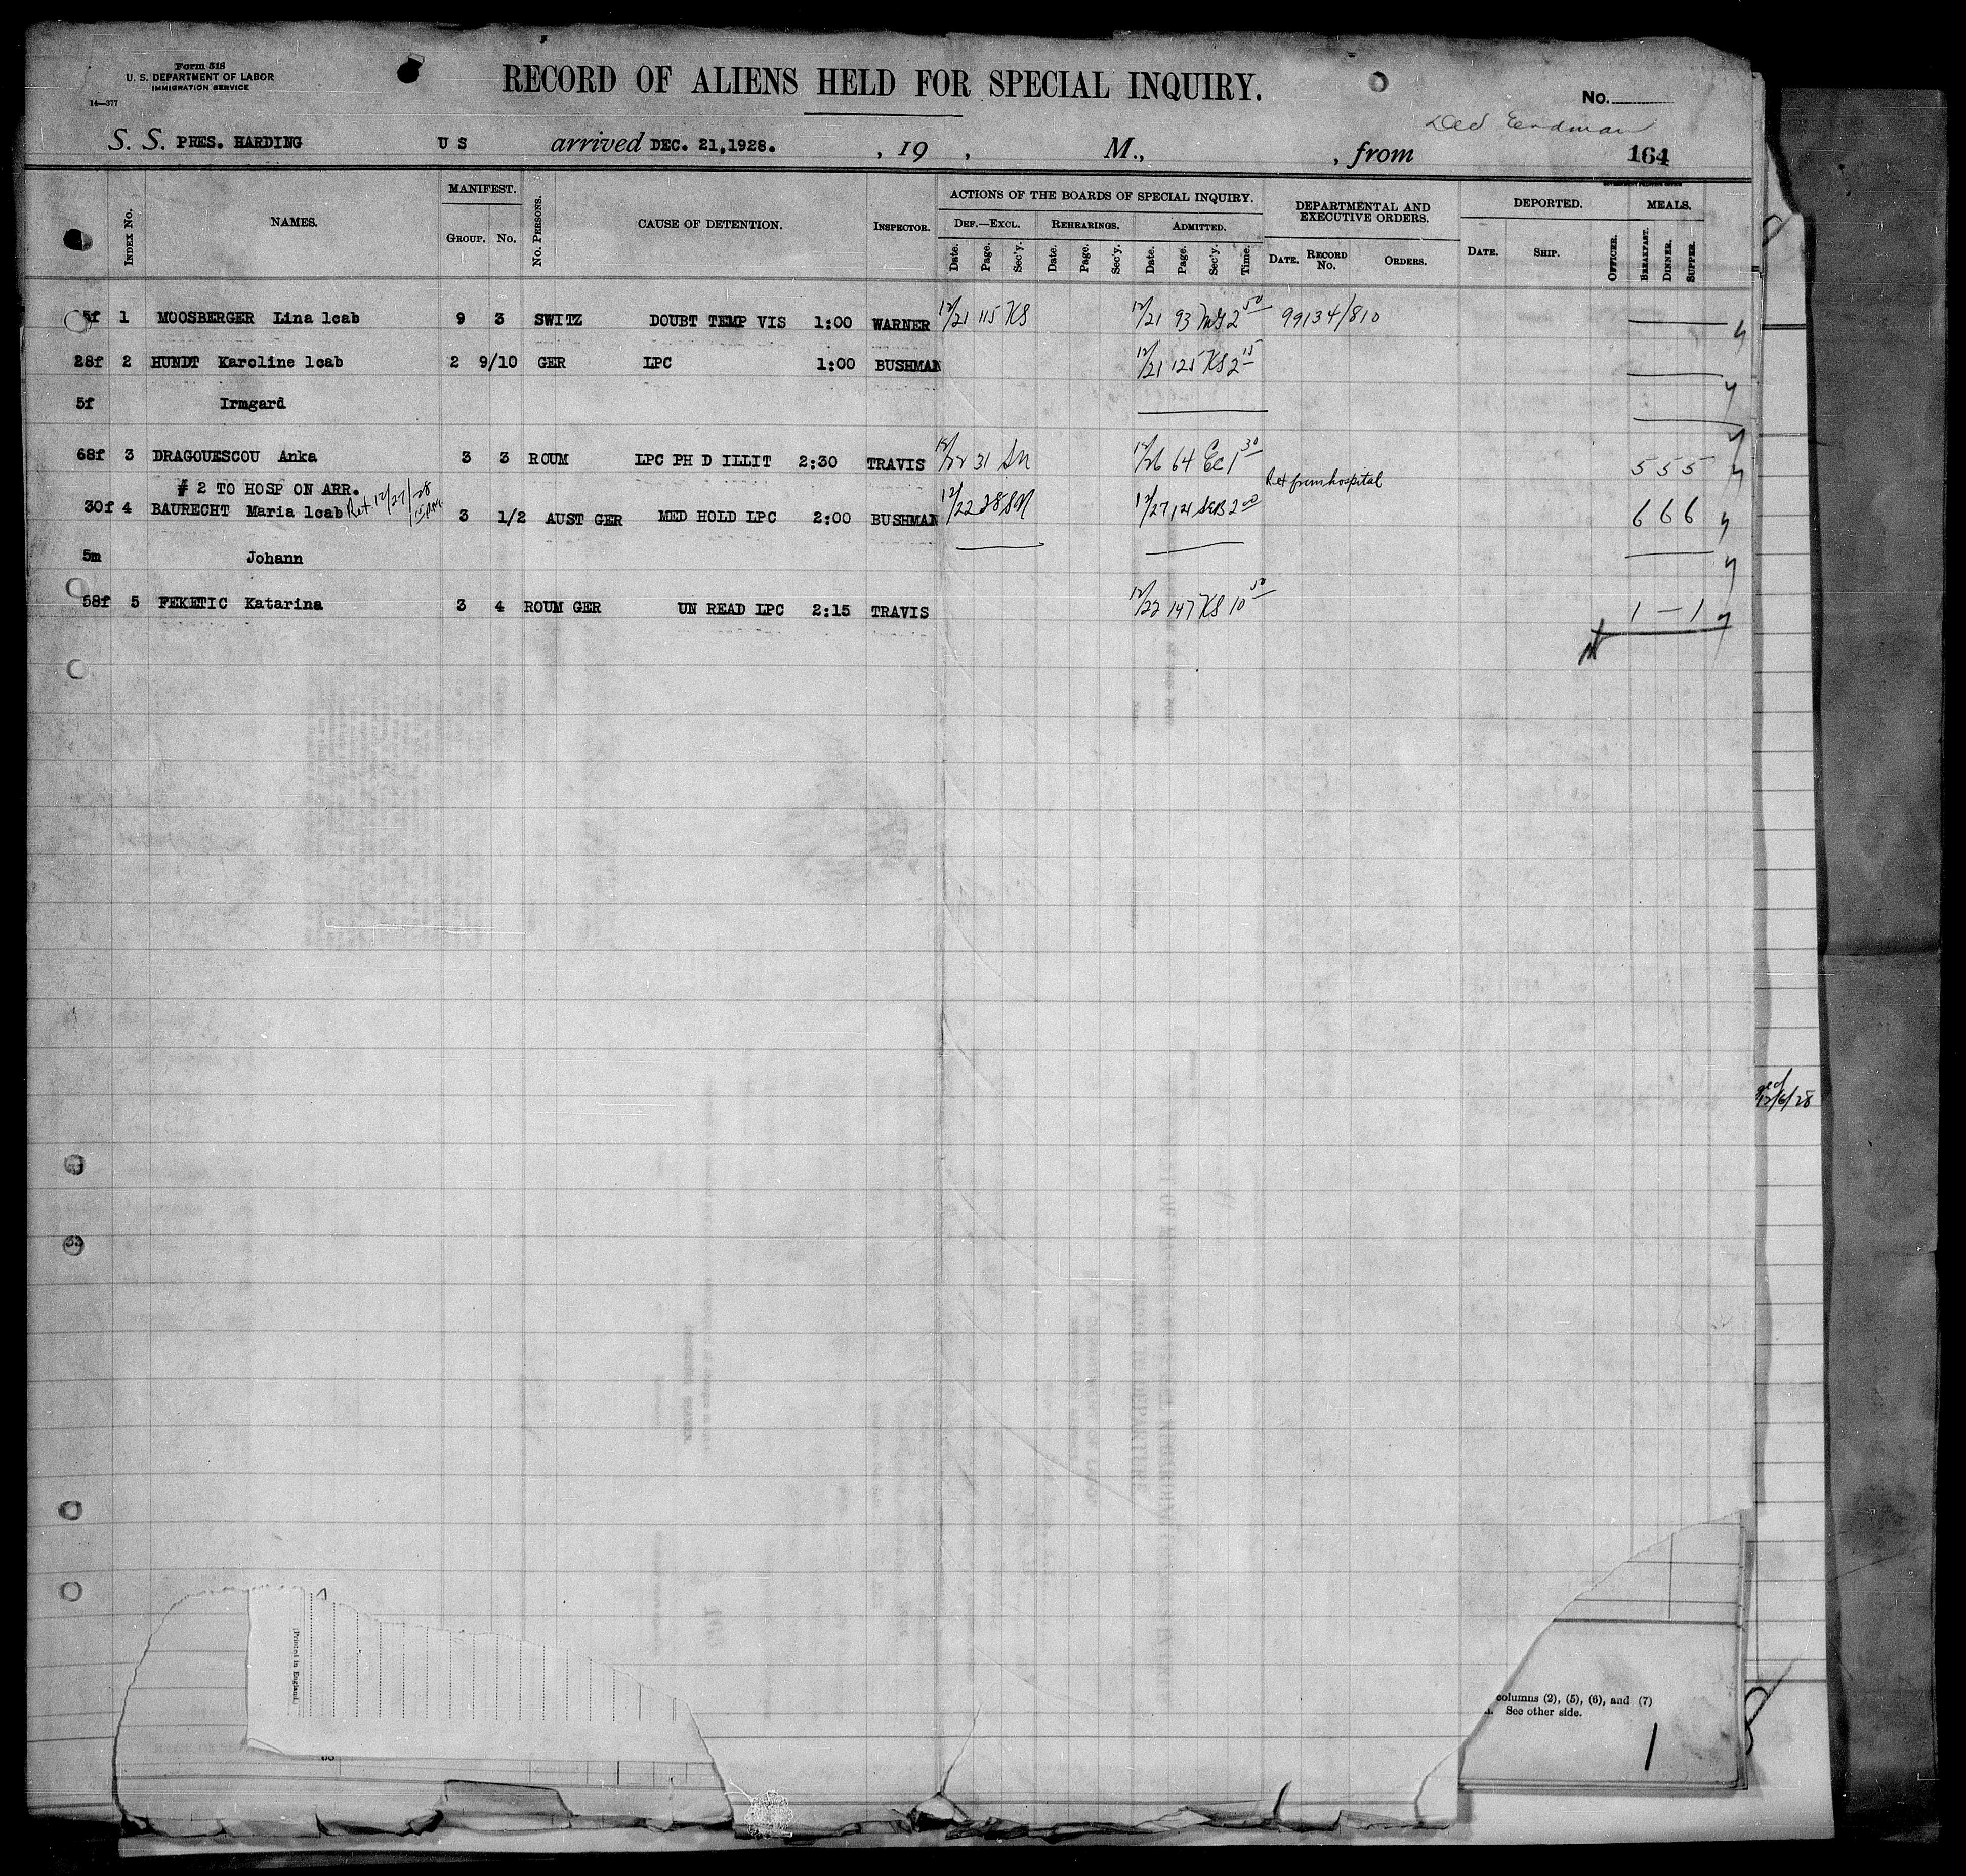 Form 518
U. S. DEPARTMENT OF LABOR
IMMIGRATION SERVICE
14—377
RECORD OF ALIENS HELD FOR SPECIAL INQUIRY.
No.
S. S. PRES. HARDING U S arrived DEC. 21,1928. , 19 , M., , from 164
INDEX No. NAMES. MANIFEST. GROUP. No. No. PERSONS. CAUSE OF DETENTION. INSPECTOR. ACTIONS OF THE BOARDS OF SPECIAL INQUIRY. DEF.—EXCL. Date. Page. Sec'y. REHEARINGS. Date. Page. Sec'y. ADMITTED. Date. Page. Sec'y. Time. DEPARTMENTAL AND EXECUTIVE ORDERS. DATE. RECORD No. ORDERS. DEPORTED. DATE. SHIP. OFFICER. MEALS. BREAKFAST. DINNER. SUPPER.
5f 1 MOOSBERGER Lina lcab 9 3 SWITZ DOUBT TEMP VIS 1:00 WARNER 12/21 115 KS 12/21 93 2 50 99134/810
28f 2 HUNDT Karoline lcab 2 9/10 GER LPC 1:00 BUSHMAN 12/21 125 KS 2 15
5f Irmgard
68f 3 DRAGOUESCOU Anka 3 3 ROUM LPC PH D ILLIT 2:30 TRAVIS 12/22 31 12/26 64 EC 1 30 5 5 5
# 2 TO HOSP ON ARR. Ret from hospital
30f 4 BAURECHT Maria lcab Ret. 12/27/28 3 1/2 AUST GER MED HOLD LPC 2:00 BUSHMAN 12/22 28 SM 12/27 121 2 00 6 6 6
5m Johann
58f 5 FEKETIC Katarina 3 4 ROUM GER UN READ LPC 2:15 TRAVIS 12/22 147 KS 10 50 1 — 1
12/6/28
(Printed in England.)
columns (2), (5), (6), and (7)
See other side.
1